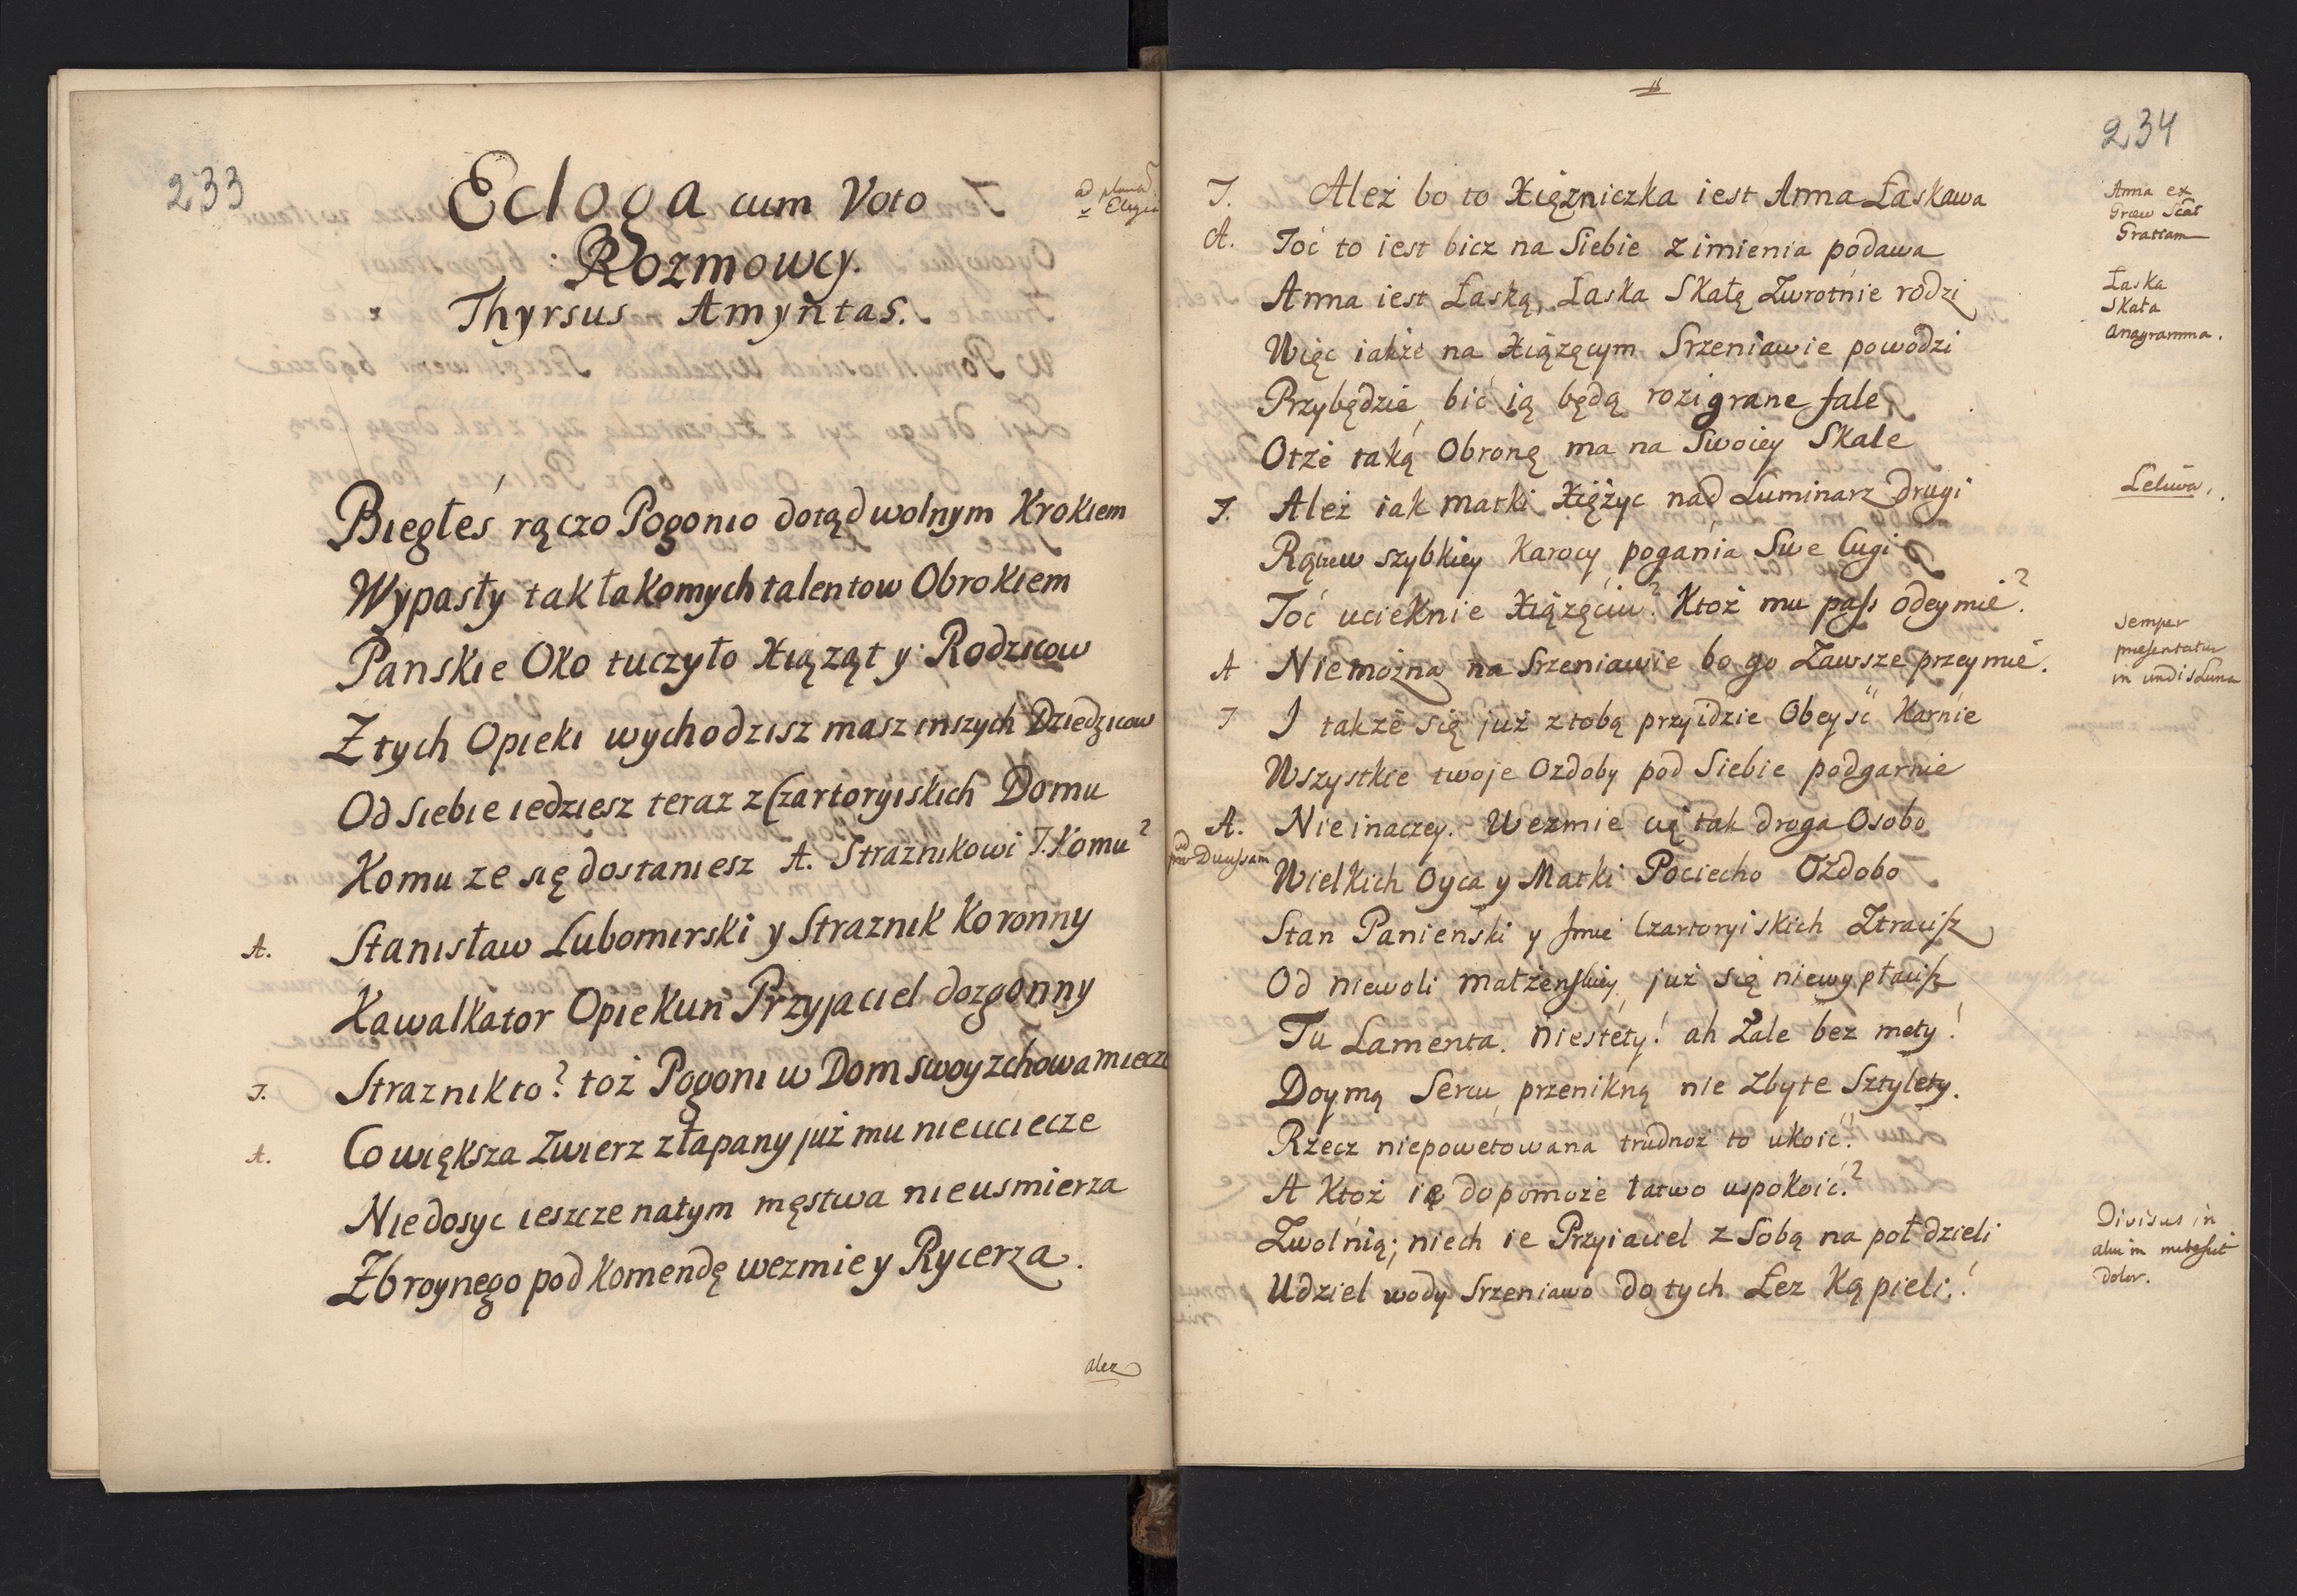 233
Ecloga cum Voto
Rozmowcy.
Thyrsus Amyntas.
Biegłeś rączo Pogonio dotąd wolnym Krokiem
Wypasły tak łakomych talentow Obrokiem
Panskie Oko tuczyło Xiąząt y Rodzicow
Z tych Opieki wychodzisz masz inszych Dziedzicow
Od siebie iedziesz teraz z Czartoryiskich Domu
Komu ze się dostaniesz A. Straznikowi T. Komu?
A. Stanisław Lubomirski y Straznik Koronny
Kawalkator Opiekun Przyjaciel dozgonny
T. Straznik to? toż Pogoni w Dom swoy zchowa miecze
A. Co większa Zwierz złapany już mu nieuciecze
Niedosyc ieszcze natym męstwa nieusmierza
Zbroynego pod Komendę wezmie y Rycerza.
alez
234
T. Ależ bo to Xiązniczka iest Anna Łaskawa
A. Toć to iest bicz na Siebie z imienia podawa
Anna iest Łaską, Łaska Skałę Zwrotnie rodzi
Więc iakże na Xiązęcym Srzeniawie powodzi
Przybędzie, bić ią będą rozigrane fale
Otże taką Obronę ma na Swoiey Skale
T. Ależ iak matki Xiężyc nad Luminarz drugi
Rączew szybkiey Karocy pogania Swe Cugi
Toć ucieknie Xiązęciu? Ktoż mu pass odeymie?
A Niemożna na Srzeniawie bo go Zawsze przeymie.
T I takze się już z tobą przyidzie Obeyść Karnie
Wszystkie twoje Ozdoby pod Siebie podgarnie
A. Nieinaczey. Wezmie cię tak droga Osobo
Wielkich Oyca y Matki Pociecho Ozdobo
Stan Panieński y Imie Czartoryiskich Ztracisz
Od niewoli małżenskiey już się niewypłacisz
Tu Lamenta. niestety! ah Żale bez mety!
Doymą Sercu, przenikną nie zbyte Sztylety.
Rzecz niepowetowana trudnoż to ukoić?
A Ktoż ię dopomoże łatwo uspokoić?
Zwolnią; niech ie Przyiaciel z Sobą na poł dzieli
Udziel wody Srzeniawo do tych Łez Kąpieli!
Anna ex
Graew
Gratiam
Łaska
Skała
Anagramma.
Leliwa.
Semper
presentatur
in undis Luna
ad
Duussam
Divisus in
dolor.